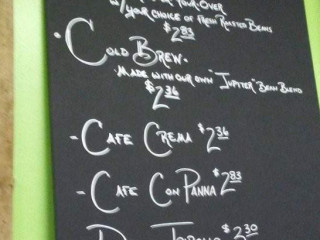 w/ your choice of fresh roasted beans
$2.83
- Cold Brew -
- Made with our own "Jupiter" Bean Blend
$2.36
- Cafe Crema $2.36
- Cafe Con Panna $2.83
$3.30